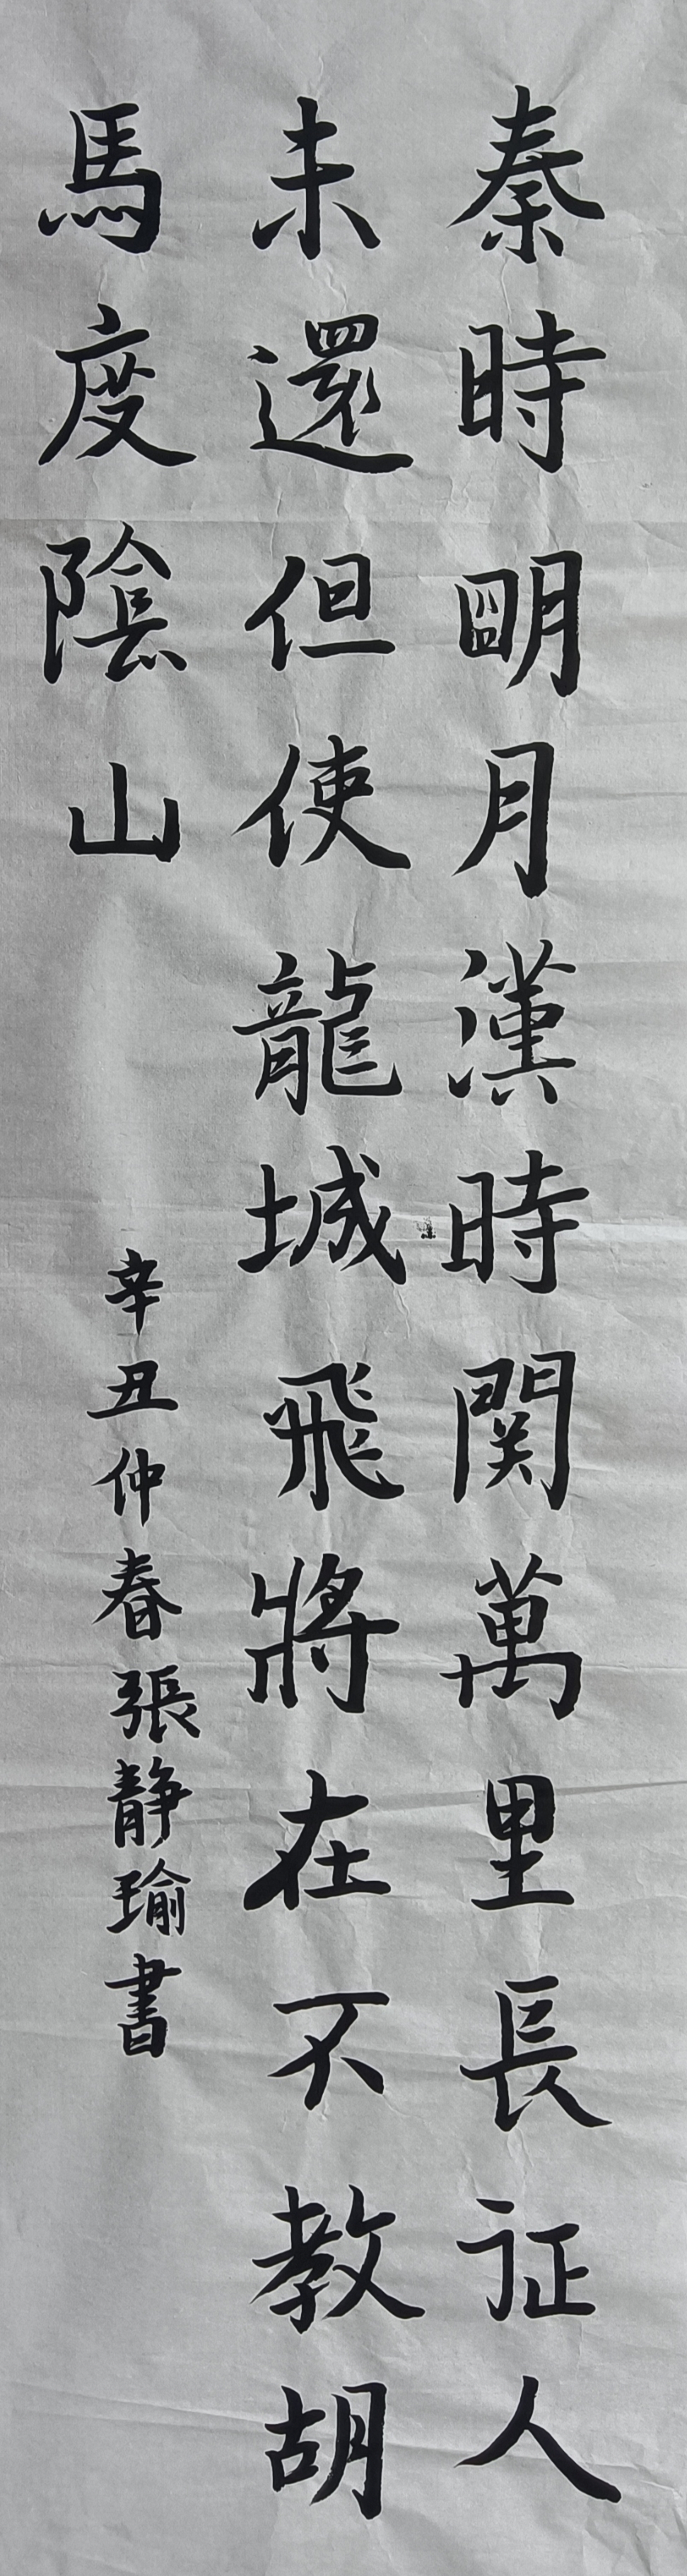 秦時明月漢時関萬里長证人
未還但使龍城飛將在不教胡
馬度陰山
辛丑仲春張静瑜書